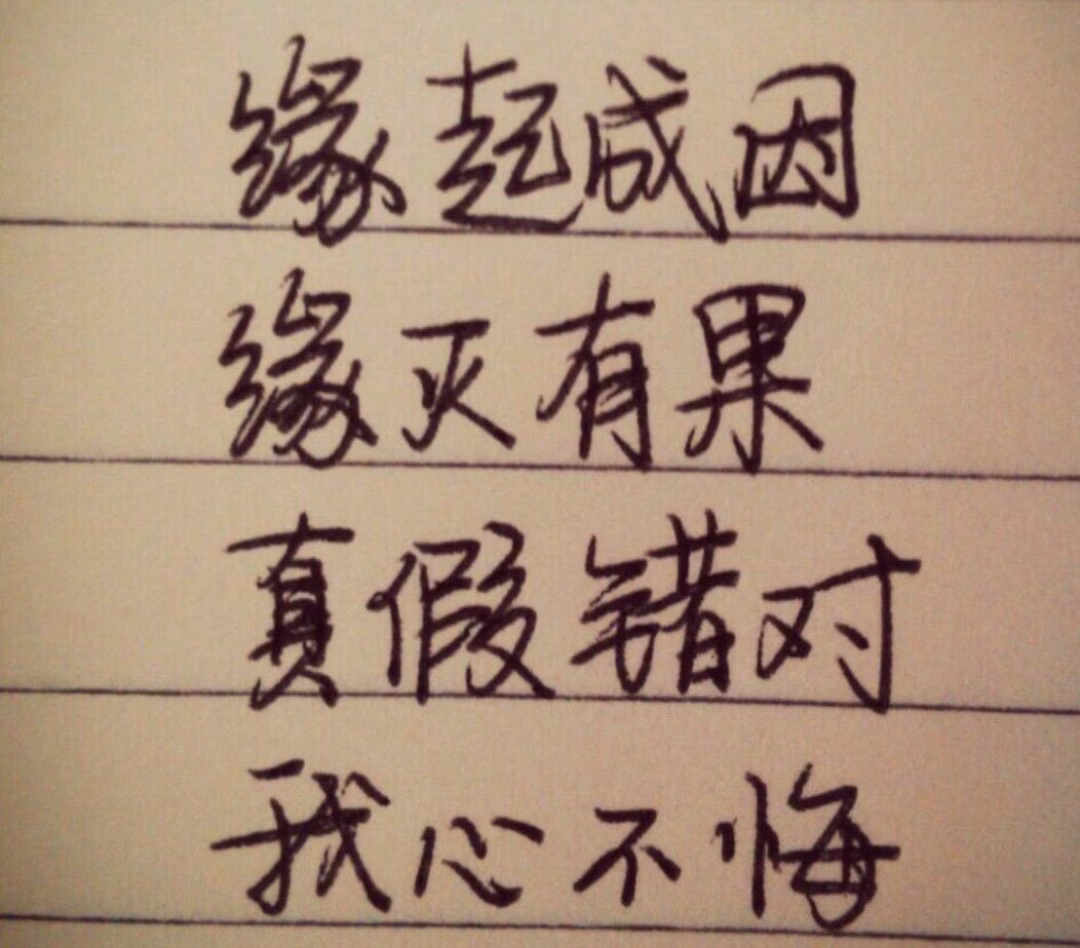 缘起成因
缘灭有果
真假错对
我心不悔